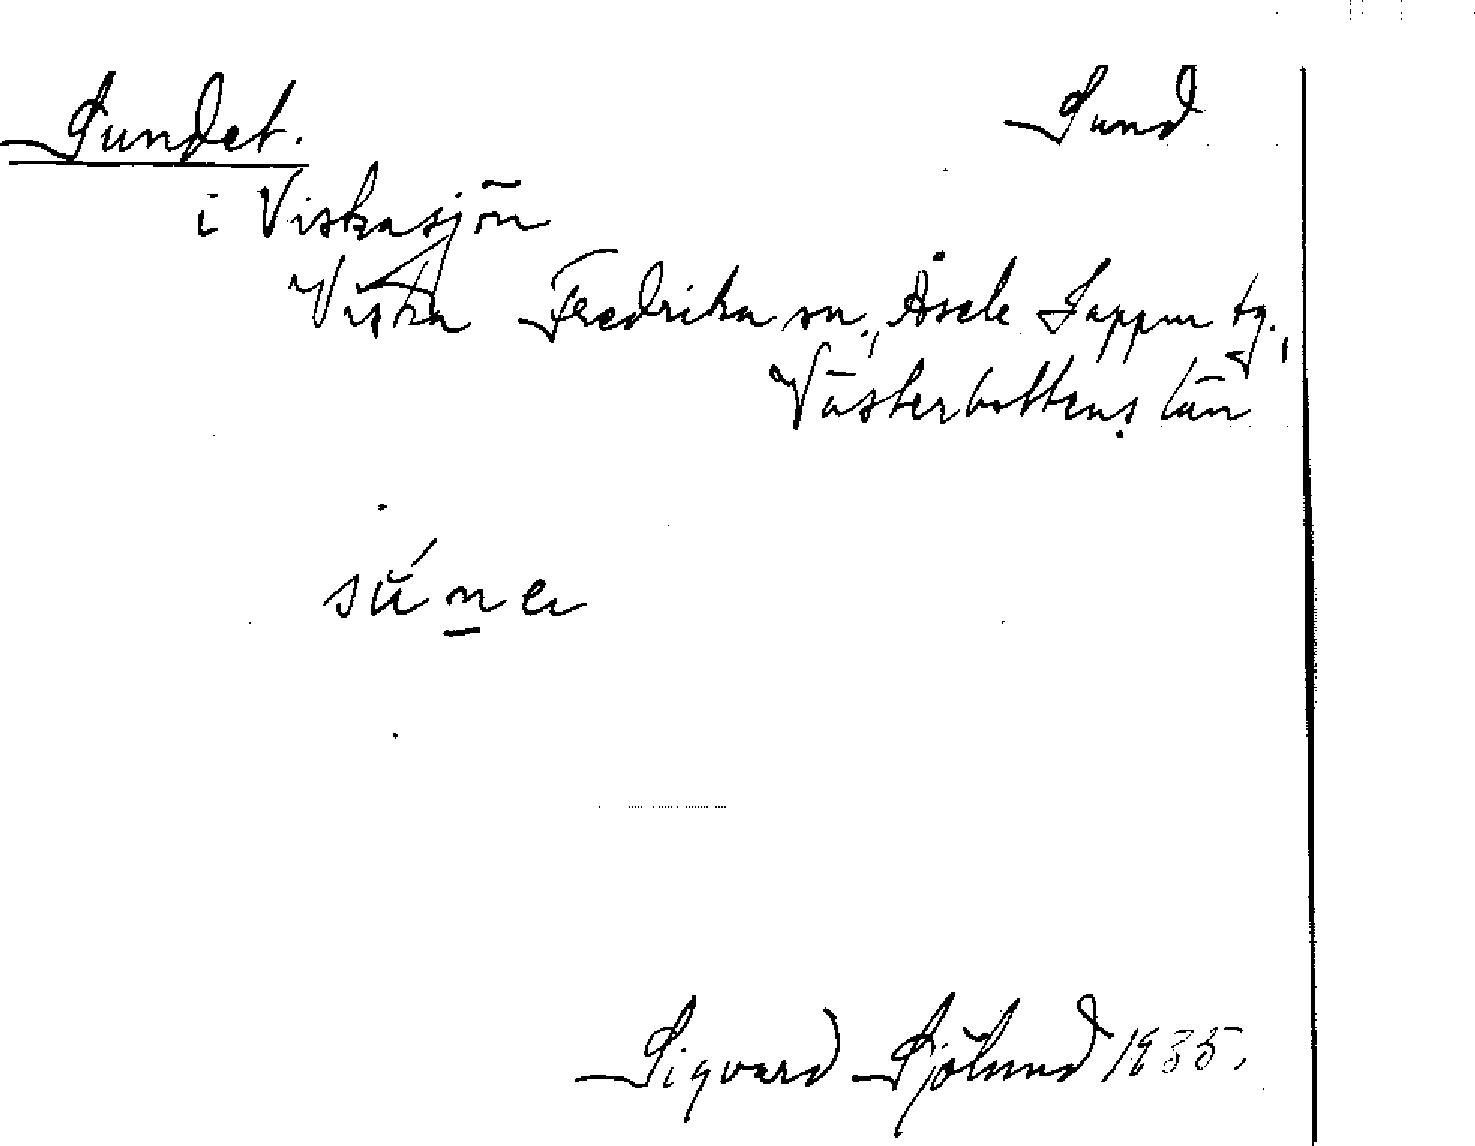 Sundet. Sund
i Viskasjön
Viska Fredrika sn., Åsele Lappm. tg.,
Västerbottens län
Sigvard Sjölund 1935.